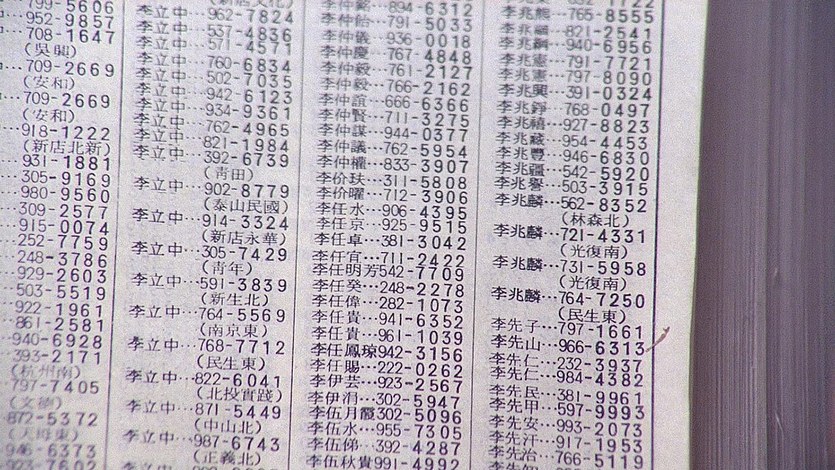 799-5606
952-9857
708-1647
(吳興)
709-2669
(安和)
709-2669
(安和)
918-1222
(新店北新)
931-1881
305-9169
980-9560
309-2577
915-0074
252-7759
248-3786
929-2603
503-5519
922-1961
861-2581
940-6928
393-2171
(杭州南)
797-7405
(文德)
872-5372
(天母東)
946-6373
923-7602
李立中…962-7824
李立中…537-4836
李立中…571-4571
李立中…760-6834
李立中…502-7035
李立中…942-6123
李立中…934-9361
李立中…762-4965
李立中…821-1984
李立中…392-6739
(青田)
李立中…902-8779
(泰山民國)
李立中…914-3324
(新店永華)
李立中…305-7429
(青年)
李立中…591-3839
(新生北)
李立中…764-5569
(南京東)
李立中…768-7712
(民生東)
李立中…822-6041
(北投實踐)
李立中…871-5449
(中山北)
李立中…987-6743
(正義北)
894-6312
李仲貽…791-5033
李仲儀…936-0018
李仲慶…767-4848
李仲毅…761-2127
李仲毅…766-2162
李仲誼…666-6366
李仲賢…711-3275
李仲謀…944-0377
李仲議…762-5954
李仲權…833-3907
李价玞…311-5808
李价曜…712-3906
李任水…906-4395
李任京…925-9515
李任卓…381-3042
李任宜…711-2422
李任明芳542-7709
李任癸…248-2278
李任偉…282-1073
李任貴…941-6352
李任貴…961-1039
李任鳳琼942-3156
李任賜…222-0262
李伊芸…923-2567
李伊涓…302-5947
李伍月霞302-5096
李伍水…955-7305
李伍娣…392-4287
李伍秋貴991-4992
李兆熊…765-8555
李兆福…821-2541
李兆綱…940-6956
李兆憲…791-7721
李兆憲…797-8090
李兆興…391-0324
李兆錚…768-0497
李兆禧…927-8823
李兆藏…954-4453
李兆豐…946-6830
李兆疆…542-5920
李兆譽…503-3915
李兆麟…562-8352
(林森北)
李兆麟…721-4331
(光復南)
李兆麟…731-5958
(光復南)
李兆麟…764-7250
(民生東)
李先子…797-1661
李先山…966-6313
李先仁…232-3937
李先仁…984-4382
李先民…381-9961
李先甲…597-9993
李先安…993-2073
李先汗…917-1953
李先治…766-5119